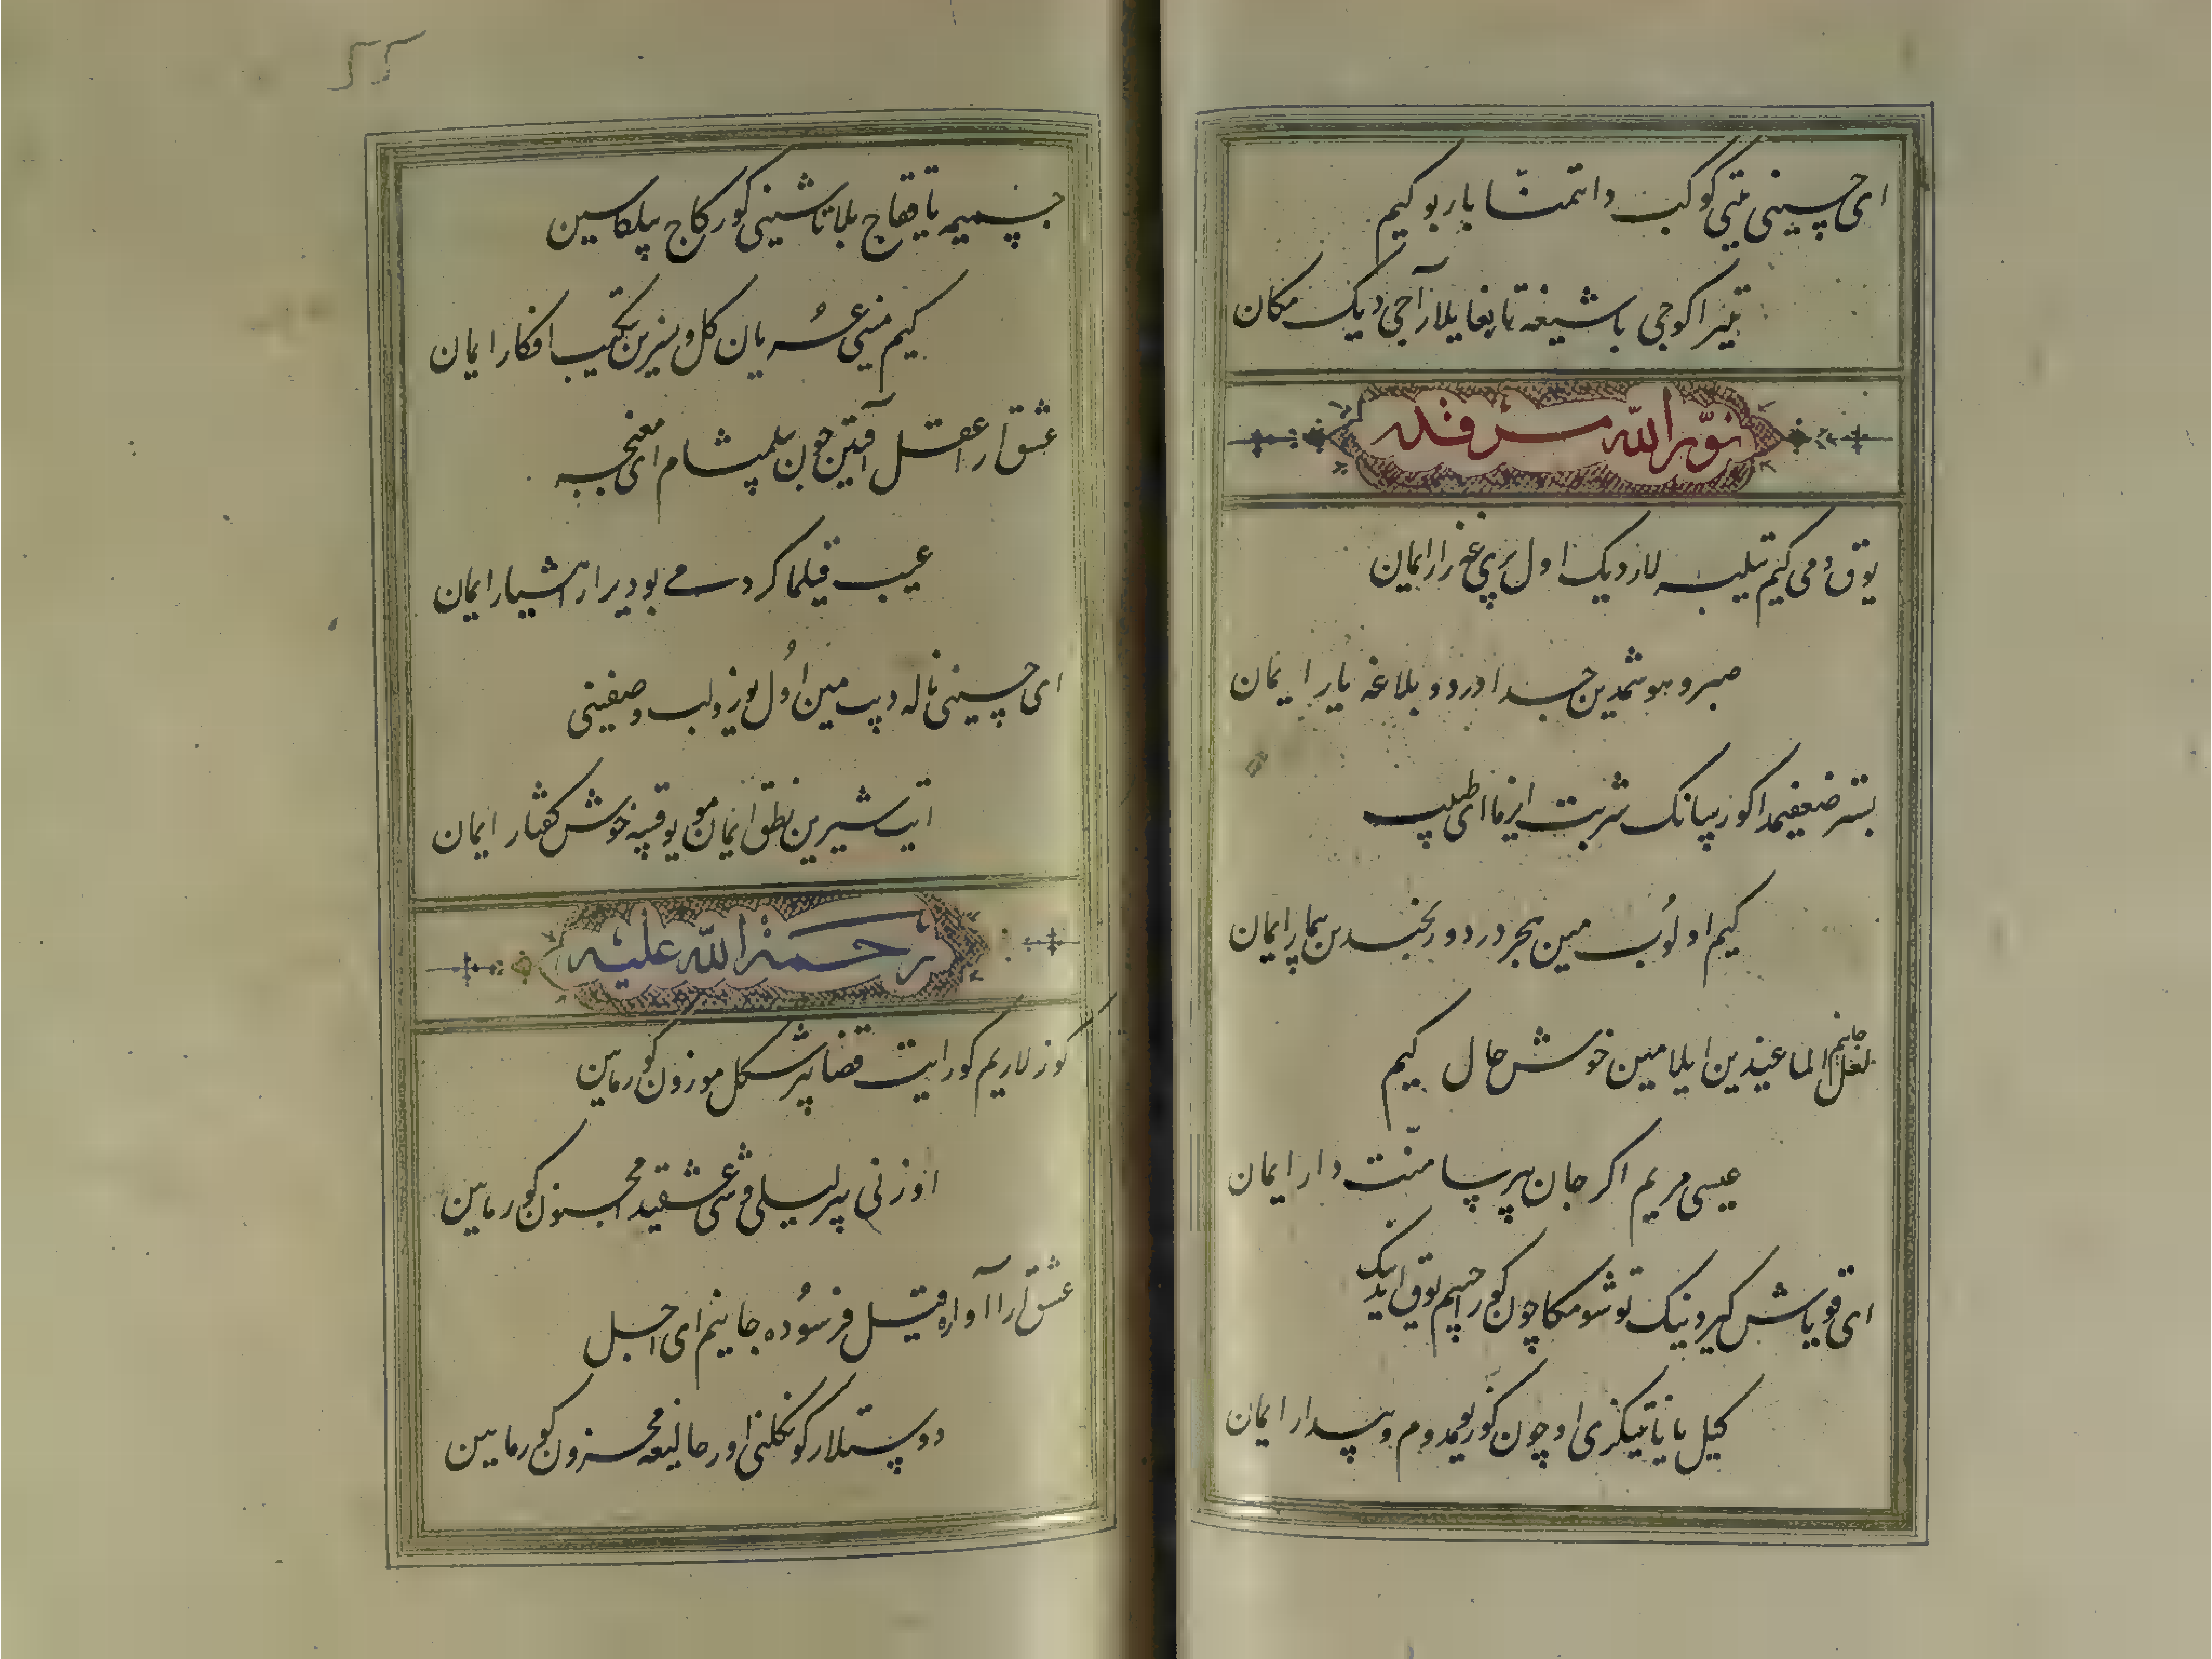 ای حسینی یتی کوکب دا تمنّا بار بو کیم
تیر اکوجی باشیغه تا بغایلار آجی دیک مکان
نوّر الله مرقده
یوق دمی کیم تیلبه لار دیک اول پری غه زار ایمان
صبر و هوشمدین جدا درد و بلاغه یار ایمان
بستر ضعفیمدا کورسانک شربت ایزما ای طبیب
کیم اولوب مین هجر درد و رنجیدین بیمار ایمان
جانیم لعل الماعیندین ایلامین خوش حال کیم
عیسی مریم اکر جان بیرسا منّت دار ایمان
ای قویاش کیردینک توشومکا چون کوراجیم یوق ایدینک
کیل یانا تیکزی اوچون کوزیومدوم و بیدار ایمان
۵۵
جسمیمه یاققاج بلا تاشینی کورکاج بیلکاسین
کیم منی عریان کل و نسرین تیکیب افکار ایمان
عشق ارا عقل آفتین چون بیلمیشام ای مغبچه
عیب قیلما کر دسه می بو دیر ارا هشیار ایمان
ای حسینی ناله دیب مین اول یوز و لب وصفینی
ایت شیرین نطق ایمان مو یوقسه خوش کفتار ایمان
رحمة الله علیه
کوزلاریم کور ایت قضا بیر شکل موزون کورمایین
اوزنی بیر لیلی وشی عشقیده مجنون کورمایین
عشق ارا آواره قیل فرسوده جانیم ای اجل
دوستلار کونکلنی اور حالیمغه محزون کورمایین